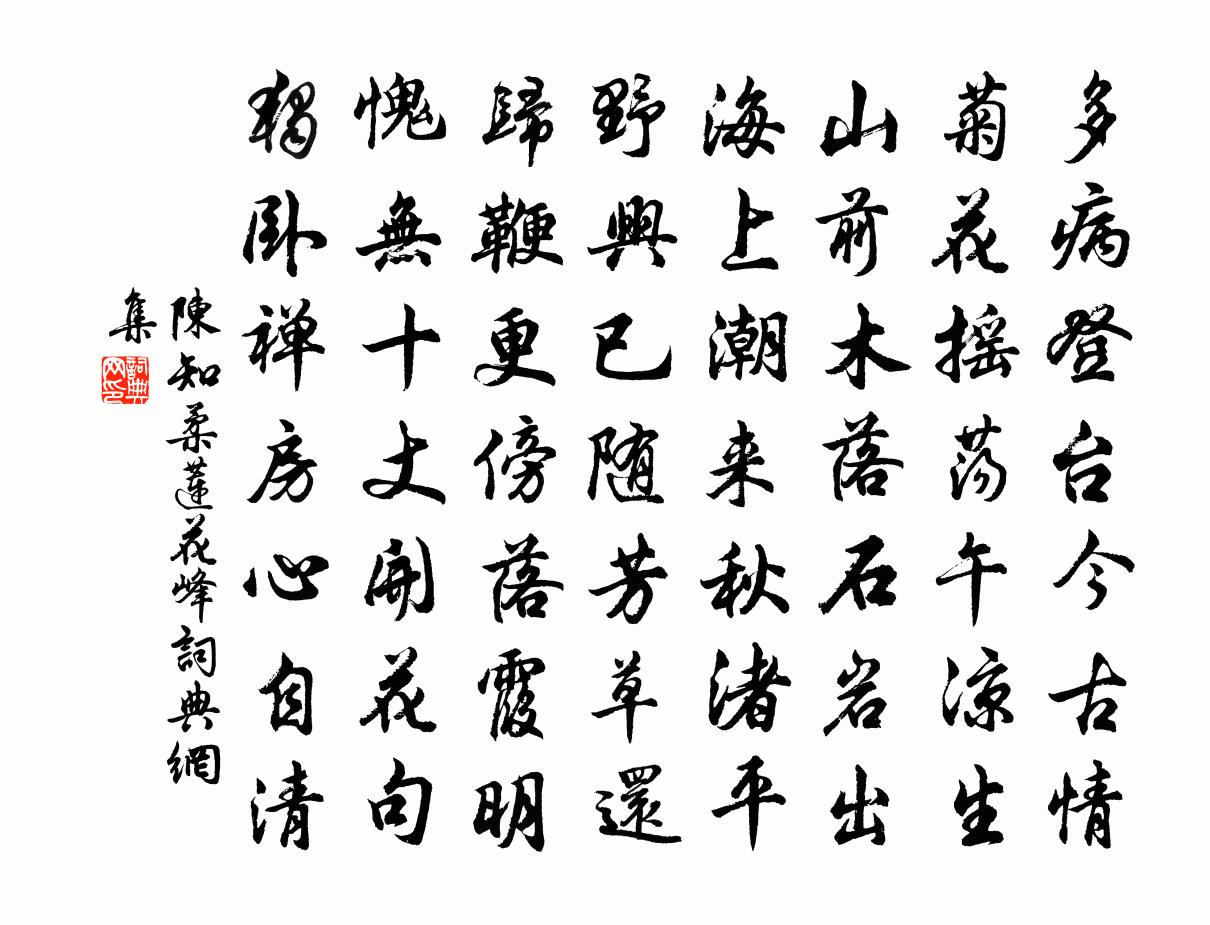 多病登台今古情
菊花摇荡午凉生
山前木落石岩出
海上潮来秋渚平
野興已随芳草還
歸鞭更傍落霞明
愧無十丈開花句
獨卧禅房心自清
陳知柔蓮花峰詞典網
集
詞典
网印